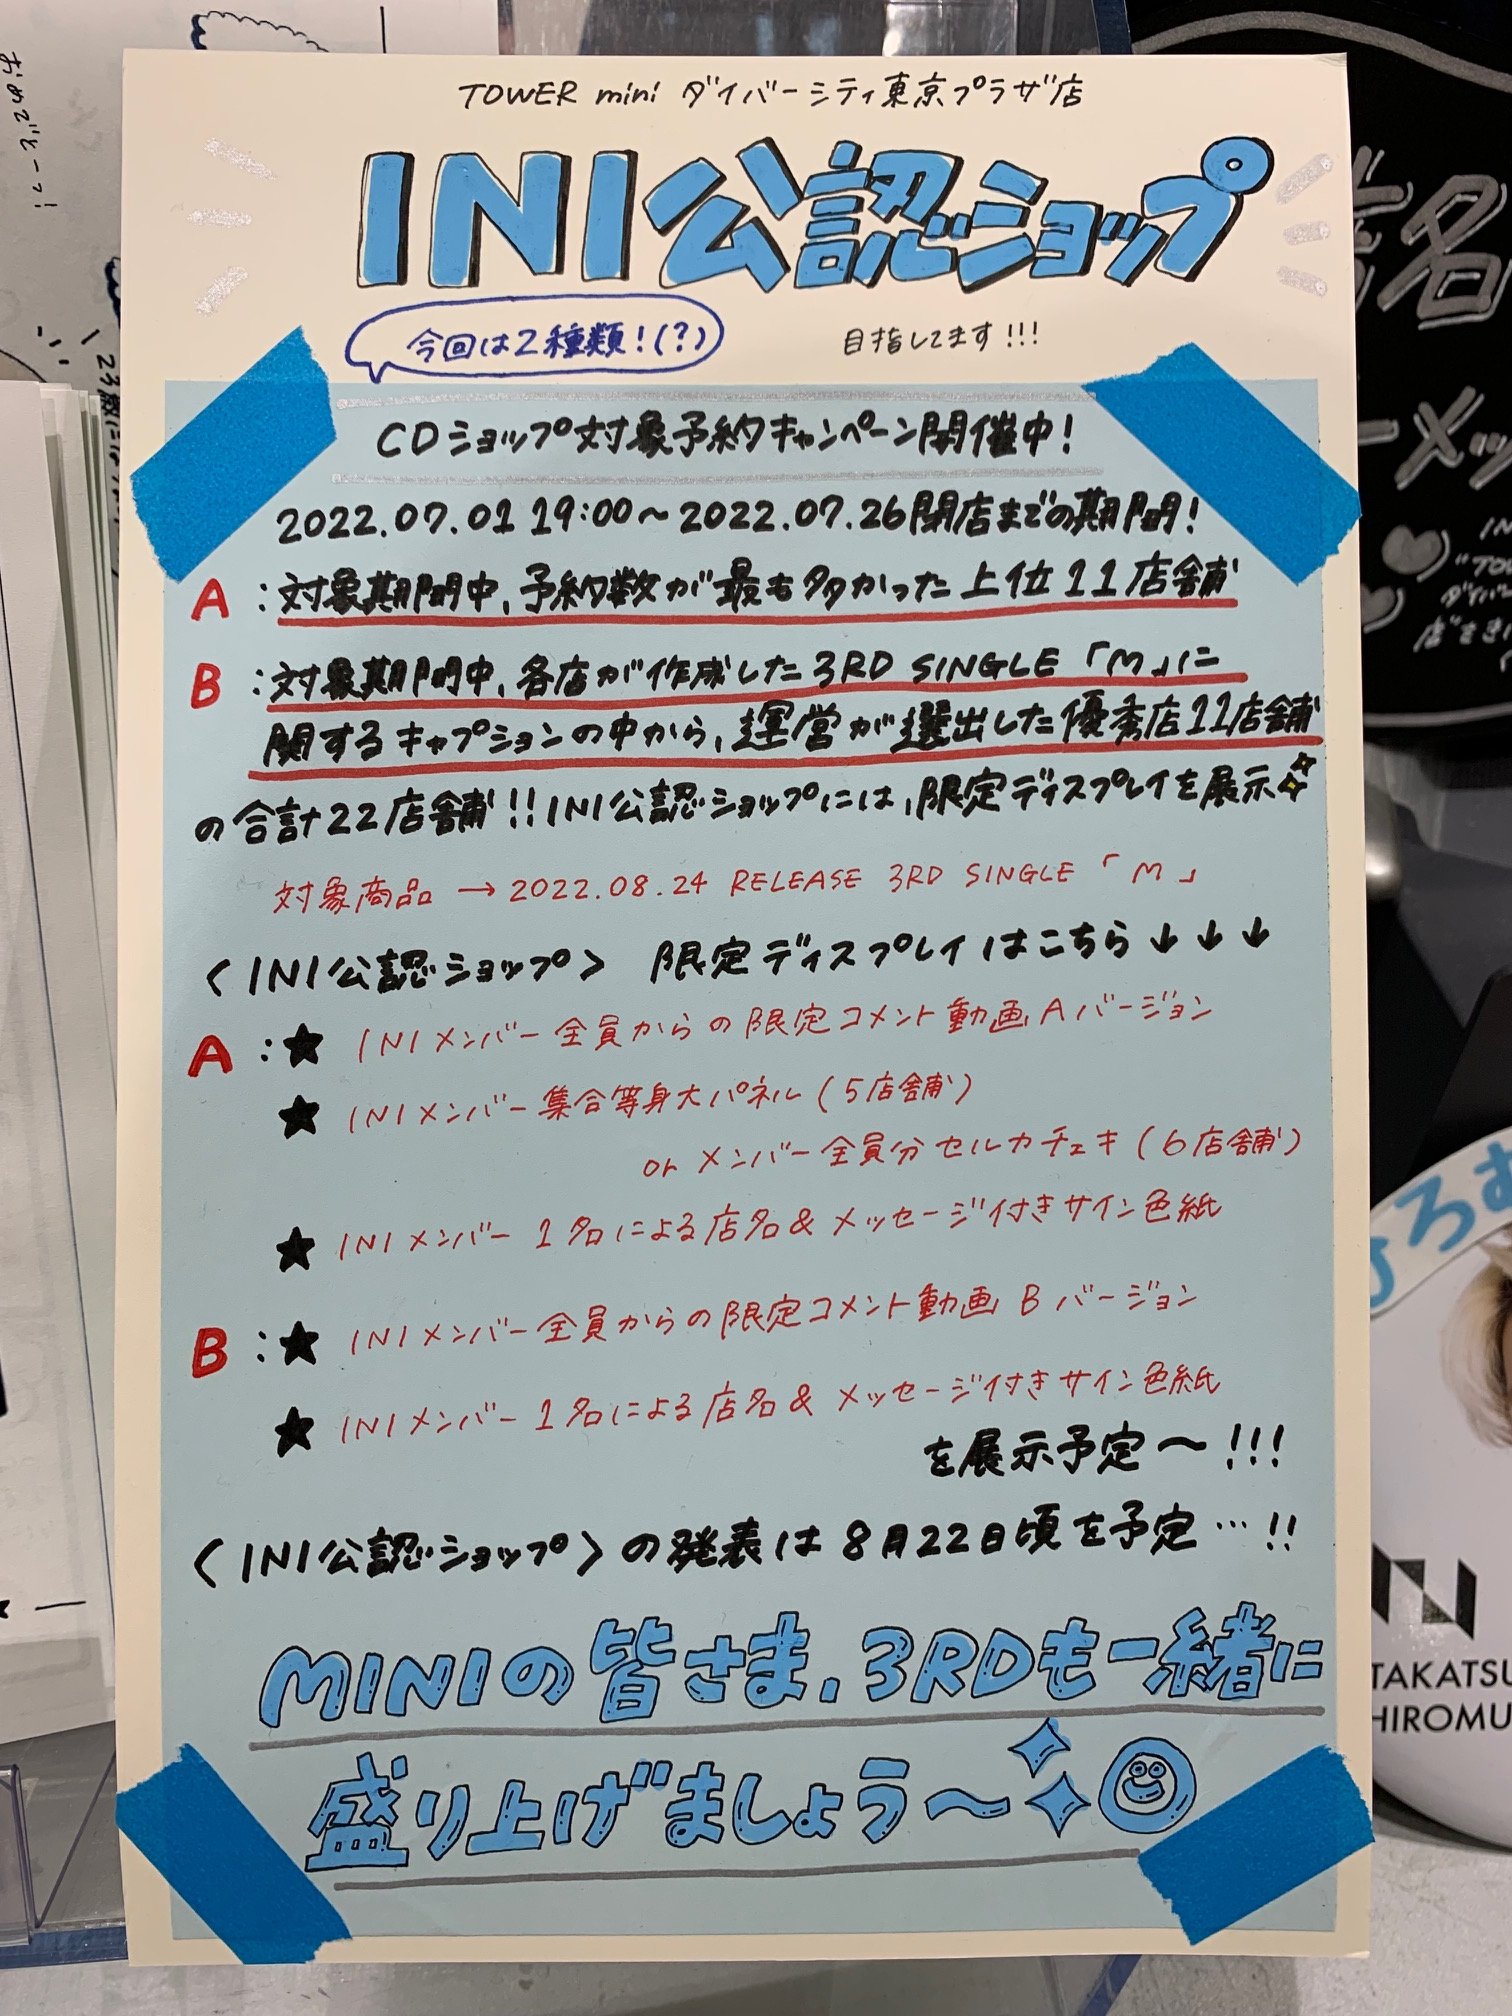 TOWER mini ダイバーシティ東京プラザ店
INI公認ショップ
今回は2種類!(?)
目指してます!!!
CDショップ対象予約キャンペーン開催中!
2022.07.01 19:00～2022.07.26閉店までの期間!
A:対象期間中、予約数が最も多かった上位11店舗
B:対象期間中、各店が作成した3RD SINGLE「M」に
関するキャプションの中から、運営が選出した優秀店11店舗
の合計22店舗!!INI公認ショップには、限定ディスプレイを展示
対象商品→2022.08.24 RELEASE 3RD SINGLE「M」
〈INI公認ショップ〉 限定ディスプレイはこちら↓↓↓
A:★ INIメンバー全員からの限定コメント動画Aバージョン
★ INIメンバー集合等身大パネル(5店舗)
or メンバー全員分セルカチェキ(6店舗)
★ INIメンバー1名による店名&メッセージ付きサイン色紙
B:★ INIメンバー全員からの限定コメント動画Bバージョン
★ INIメンバー1名による店名&メッセージ付きサイン色紙
を展示予定～!!!
〈INI公認ショップ〉の発表は8月22日頃を予定…!!
MINIの皆さま、3RDも一緒に
盛り上げましょう～
ひろむ
TAKATSU
HIROMU